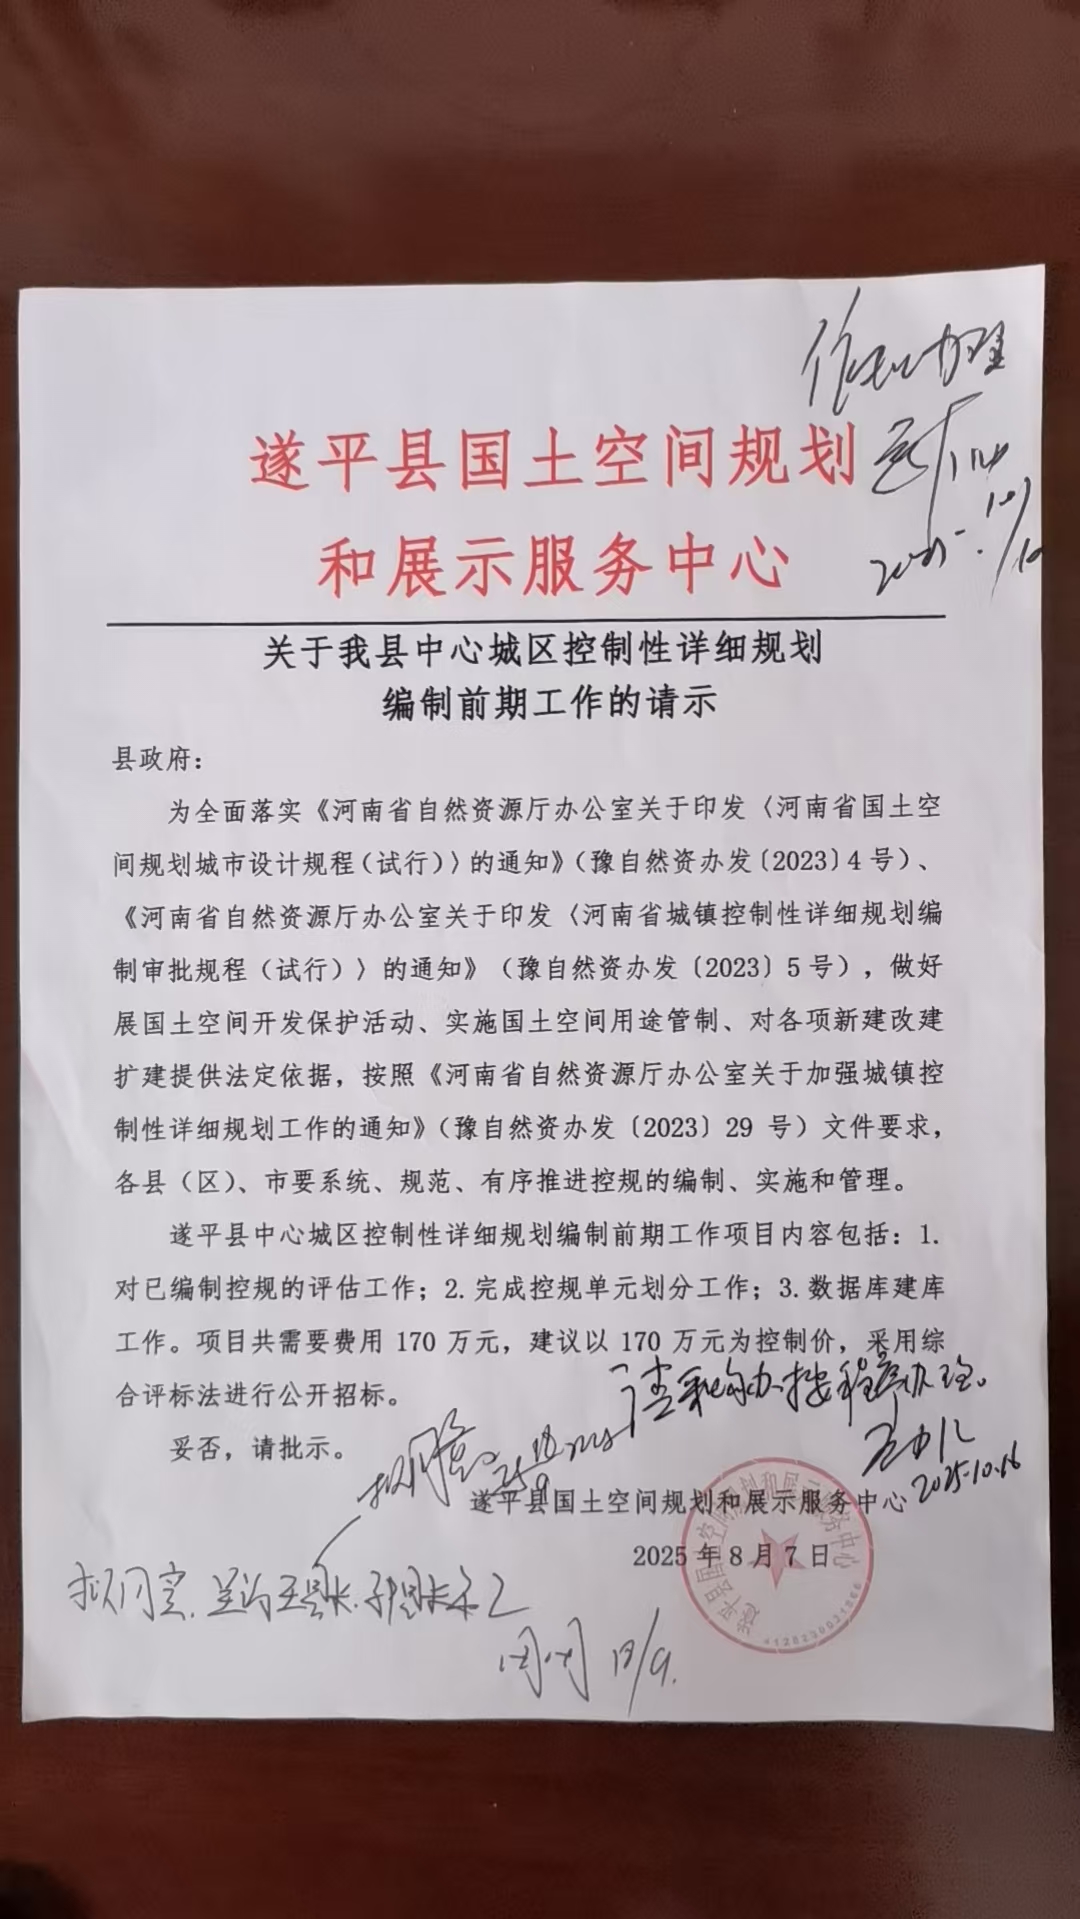 遂平县国土空间规划
和展示服务中心
关于我县中心城区控制性详细规划
编制前期工作的请示
县政府：
为全面落实《河南省自然资源厅办公室关于印发〈河南省国土空
间规划城市设计规程（试行）〉的通知》（豫自然资办发〔2023〕4号）、
《河南省自然资源厅办公室关于印发〈河南省城镇控制性详细规划编
制审批规程（试行）〉的通知》（豫自然资办发〔2023〕5号），做好
展国土空间开发保护活动、实施国土空间用途管制、对各项新建改建
扩建提供法定依据，按照《河南省自然资源厅办公室关于加强城镇控
制性详细规划工作的通知》（豫自然资办发〔2023〕29 号）文件要求，
各县（区）、市要系统、规范、有序推进控规的编制、实施和管理。
遂平县中心城区控制性详细规划编制前期工作项目内容包括：1.
对已编制控规的评估工作；2.完成控规单元划分工作；3.数据库建库
工作。项目共需要费用 170 万元，建议以 170 万元为控制价，采用综
合评标法进行公开招标。
妥否，请批示。
请采购办按程序办理。
2025.10.16
遂平县国土空间规划和展示服务中心
2025 年 8 月 7 日
拟同意